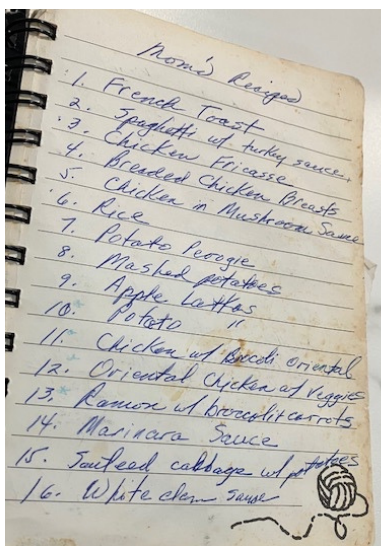 Mom's Recipes
1. French Toast
2. Spaghetti w/ turkey sauce.
3. Chicken Fricasse
4. Breaded Chicken Breasts
5. Chicken in Mushroom Sauce
6. Rice
7. Potato Peroogie
8. Mashed potatoes
9. Apple Lattkas
10. Potato "
11. Chicken w/ Brocoli Oriental
12. Oriental Chicken w/ Veggies
13. Ramon w/ broccoli + carrots
14. Marinara Sauce
15. Sauteed cabbage w/ potatoes
16. White clam sauce